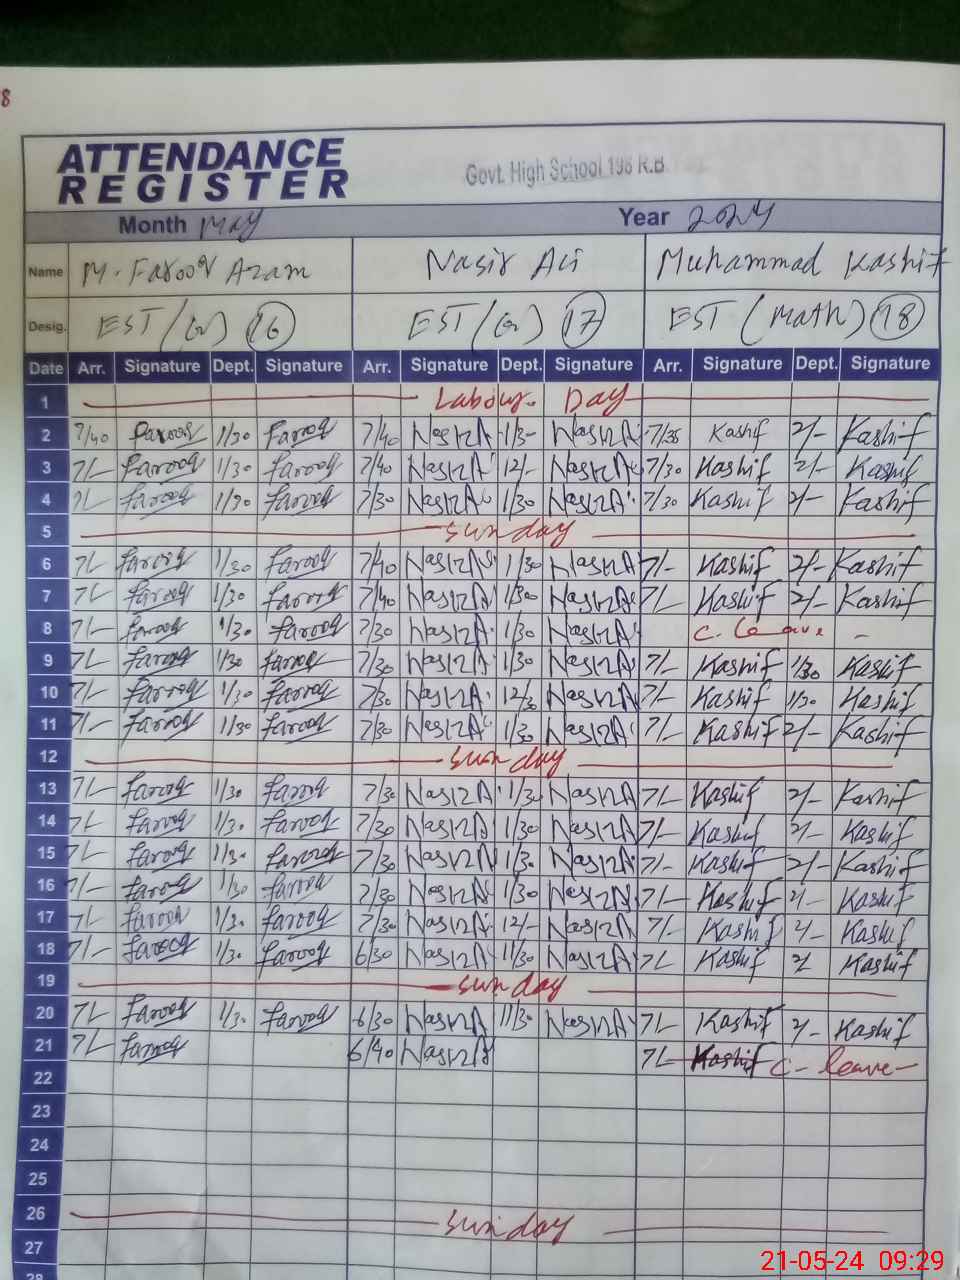 8
ATTENDANCE
REGISTER
Govt. High School 198 R.B.
Month May Year 2024
Name M. Farooq Azam Nasir Ali Muhammad Kashif
Desig. EST (G) 16 EST (G) 17 EST (Math) 18
Date Arr. Signature Dept. Signature Arr. Signature Dept. Signature Arr. Signature Dept. Signature
1 Labour Day
2 7/40 Farooq 1/30 Farooq 7/40 Nasir A 1/30 Nasir A 7/35 Kashif 2/- Kashif
3 7/- Farooq 1/30 Farooq 7/40 Nasir A 12/- Nasir A 7/30 Kashif 2/- Kashif
4 7/- Farooq 1/30 Farooq 7/30 Nasir A 1/30 Nasir A 7/30 Kashif 2/- Kashif
5 Sunday
6 7/- Farooq 1/30 Farooq 7/40 Nasir A 1/30 Nasir A 7/- Kashif 2/- Kashif
7 7/- Farooq 1/30 Farooq 7/40 Nasir A 1/30 Nasir A 7/- Kashif 2/- Kashif
8 7/- Farooq 1/30 Farooq 7/30 Nasir A 1/30 Nasir A C. leave -
9 7/- Farooq 1/30 Farooq 7/30 Nasir A 1/30 Nasir A 7/- Kashif 1/30 Kashif
10 7/- Farooq 1/30 Farooq 7/30 Nasir A 12/30 Nasir A 7/- Kashif 1/30 Kashif
11 7/- Farooq 1/30 Farooq 7/30 Nasir A 1/30 Nasir A 7/- Kashif 2/- Kashif
12 Sunday
13 7/- Farooq 1/30 Farooq 7/30 Nasir A 1/30 Nasir A 7/- Kashif 2/- Kashif
14 7/- Farooq 1/30 Farooq 7/30 Nasir A 1/30 Nasir A 7/- Kashif 2/- Kashif
15 7/- Farooq 1/30 Farooq 7/30 Nasir A 1/30 Nasir A 7/- Kashif 2/- Kashif
16 7/- Farooq 1/30 Farooq 7/30 Nasir A 1/30 Nasir A 7/- Kashif 2/- Kashif
17 7/- Farooq 1/30 Farooq 7/30 Nasir A 12/- Nasir A 7/- Kashif 2/- Kashif
18 7/- Farooq 1/30 Farooq 6/30 Nasir A 11/30 Nasir A 7/- Kashif 2/- Kashif
19 Sunday
20 7/- Farooq 1/30 Farooq 6/30 Nasir A 11/30 Nasir A 7/- Kashif 2/- Kashif
21 7/- Farooq 6/40 Nasir A 7/- Kashif C- leave-
22
23
24
25
26 Sunday
27
28
21-05-24 09:29